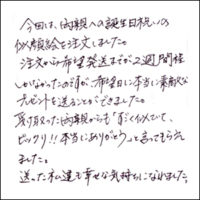 今回は、両親への誕生日祝いの
似顔絵を注文しました。
注文から希望発送までが2週間程
しかなかったのですが、希望日に本当に素敵な
プレゼントを送ることができました。
受け取った両親からも「すごく似てて、
ビックリ!!本当にありがとう」と言ってもらえ
ました。
送った私達も幸せな気持ちになれました。